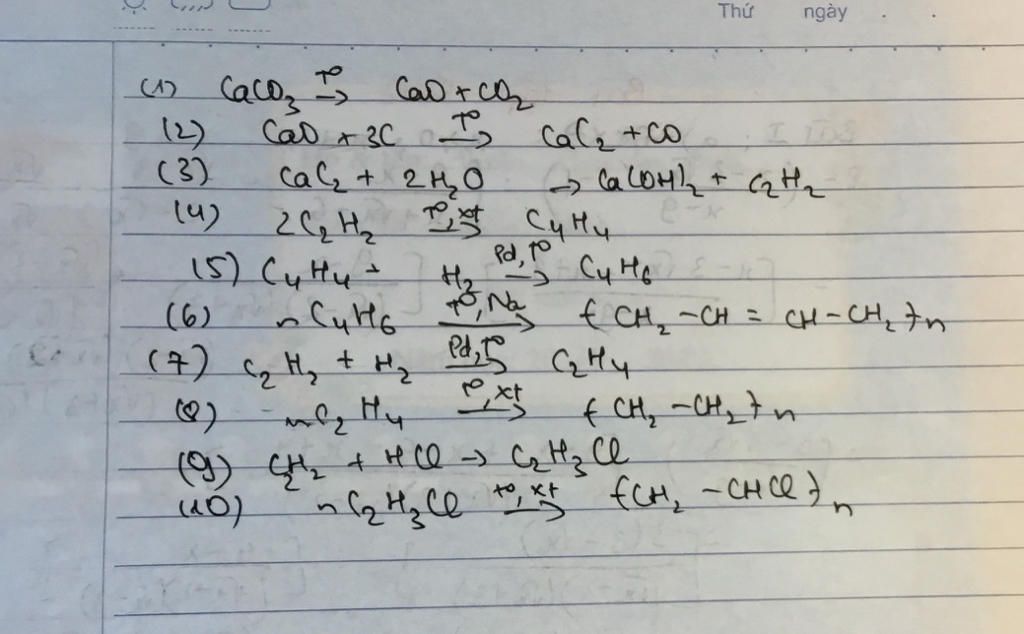 Thứ ngày . .
(1) CaCO₃ →(t°) CaO + CO₂
(2) CaO + 3C →(t°) CaC₂ + CO
(3) CaC₂ + 2H₂O → Ca(OH)₂ + C₂H₂
(4) 2C₂H₂ →(t°, xt) C₄H₄
(5) C₄H₄ + H₂ →(Pd, t°) C₄H₆
(6) nC₄H₆ →(t°, Na) (CH₂ – CH = CH – CH₂)n
(7) C₂H₂ + H₂ →(Pd, t°) C₂H₄
(8) nC₂H₄ →(t°, xt) (CH₂ – CH₂)n
(9) C₂H₂ + HCl → C₂H₃Cl
(10) nC₂H₃Cl →(t°, xt) (CH₂ – CHCl)n